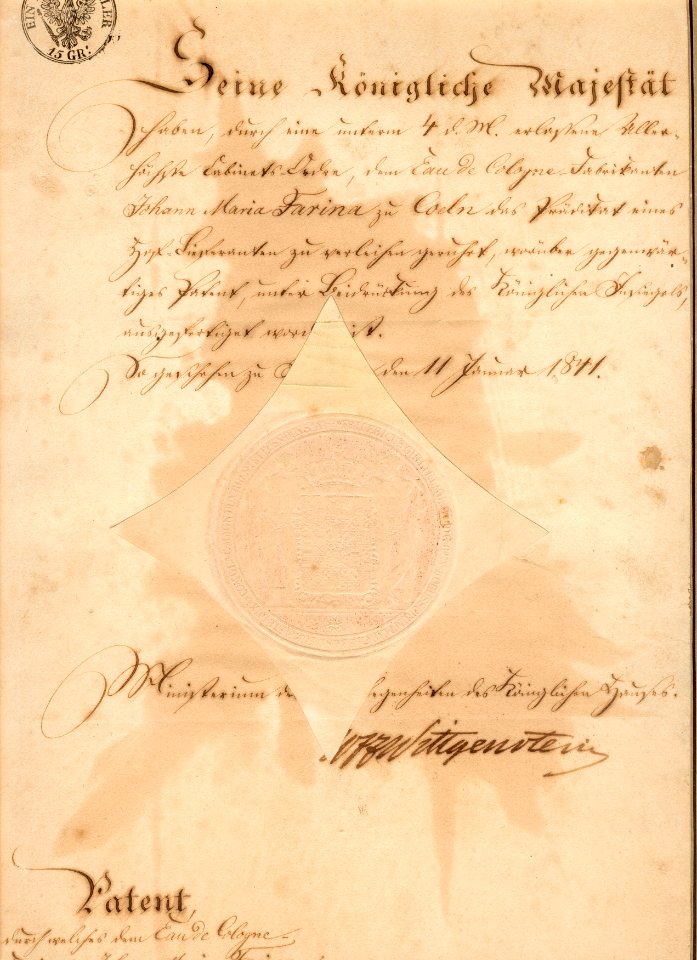 EIN
LER
15 GR:
Seine Königliche Majestät
haben, durch eine unterm 4 d. M. erlassene Aller-
höchste Cabinets-Ordre, dem Eau de Cologne Fabrikanten
Johann Maria Farina zu Coeln das Prädikat eines
Hof-Lieferanten zu verleihen geruht, worüber gegenwär-
tiges Patent, unter Beidrückung des Königlichen Insiegels,
ausgefertiget word ist.
So geschehen zu den 11 Januar 1841.
Ministerium de egenheiten des Königlichen Hauses.
Wittgenstein
Patent,
durch welches dem Eau de Cologne-